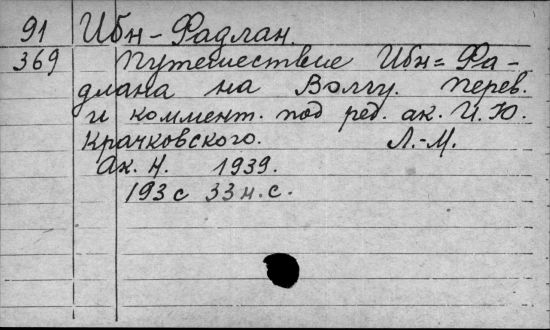 91 Ибн-Фадлан.
369 Путешествие Ибн=Фа-
длана на Волгу. Перев.
и коммент. под ред. ак. И.Ю.
Крачковского. Л.-М.
Ак. Н. 1939.
193 с 33 н.с.